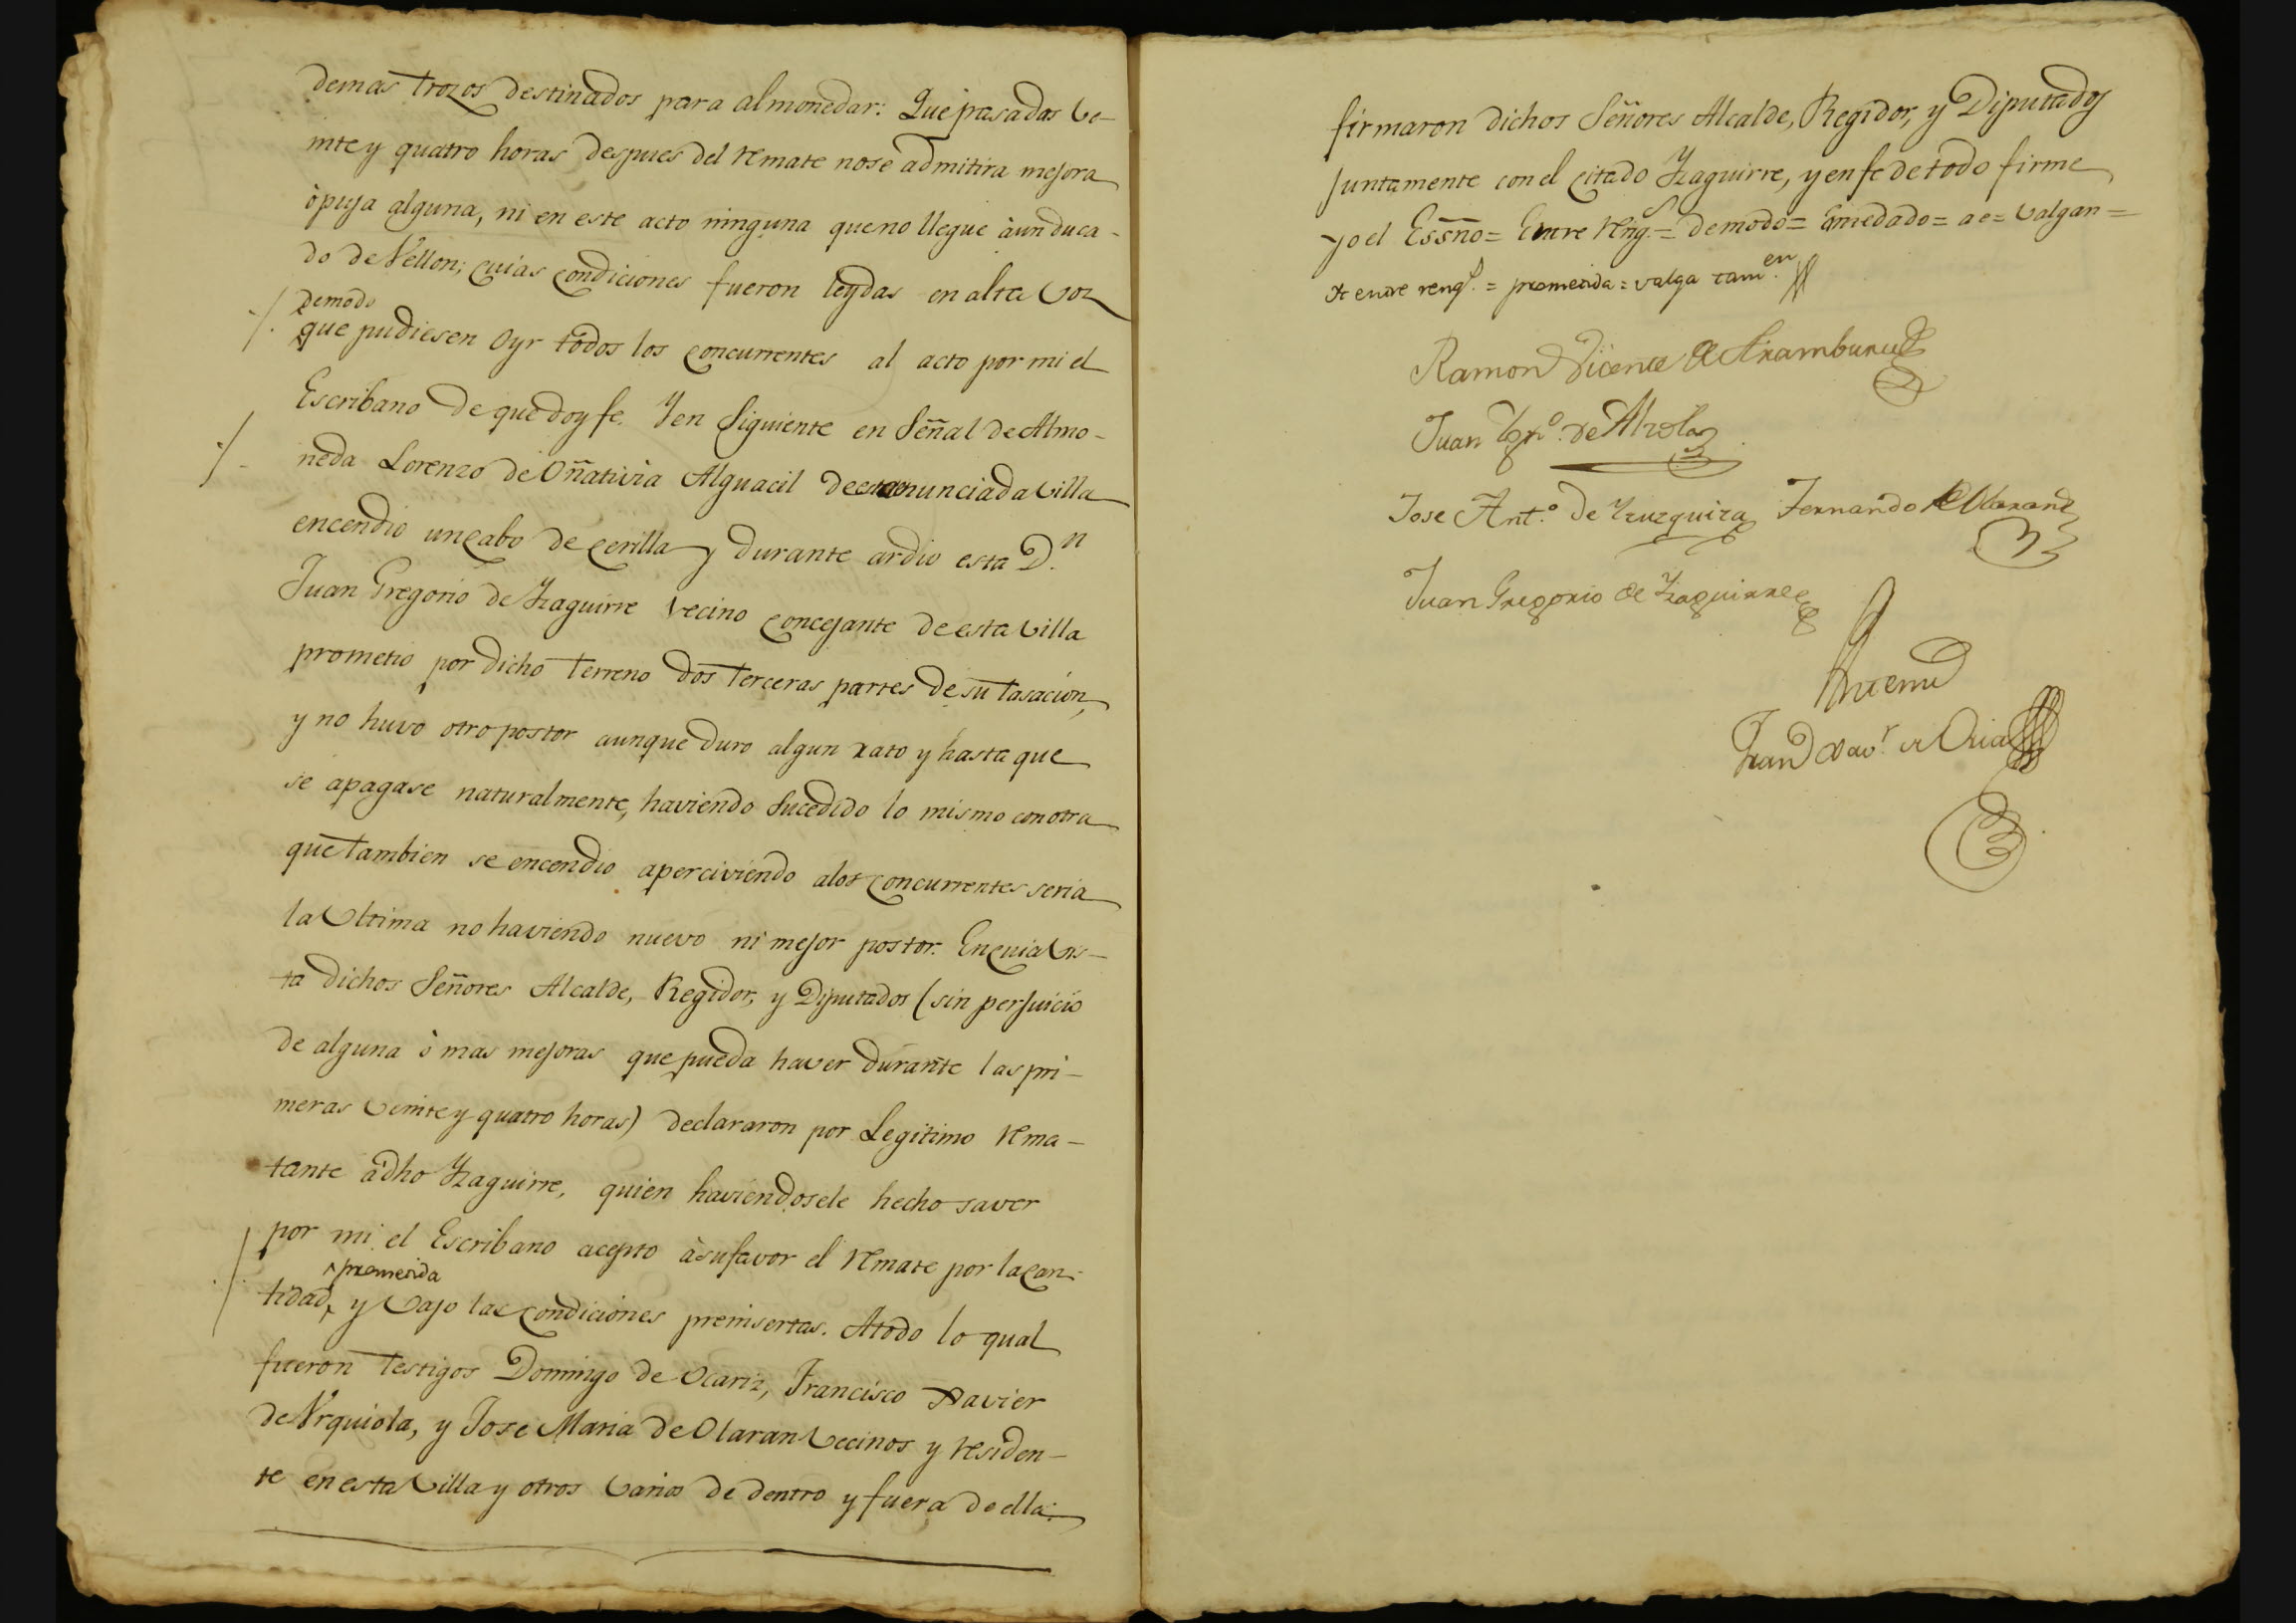 demas trozos destinados para almonedar: Que pasadas ve-
inte y quatro horas despues del remate no se admitira mejora
ò puja alguna, ni en este acto ninguna que no llegue à un duca-
do de Vellon; cuias condiciones fueron leydas en alta voz
demodo
que pudiesen oyr todos los concurrentes al acto por mi el
Escribano de que doy fe. Y en siguiente en Señal de Almo-
neda Lorenzo de Oñativia Alguacil de enunciada villa
encendio un cabo de cerilla y durante ardio esta D.n
Juan Gregorio de Yzaguirre vecino concejante de esta villa
prometio por dicho terreno dos terceras partes de su tasacion,
y no huvo otro postor aunque duro algun rato y hasta que
se apagase naturalmente, haviendo sucedido lo mismo con otra
que tambien se encendio aperciviendo a los concurrentes seria
la ultima no haviendo nuevo ni mejor postor. En cuia vis-
ta dichos Señores Alcalde, Regidor, y Diputados (sin perjuicio
de alguna ò mas mejoras que pueda haver durante las pri-
meras veinte y quatro horas) declararon por Legitimo rema-
tante à dho Yzaguirre, quien haviendosele hecho saver
por mi el Escribano acepto à su favor el remate por la can-
prometida
tidad, y vajo las condiciones preinsertas. A todo lo qual
fueron testigos Domingo de Ocariz, Francisco Xavier
de Vrquiola, y Jose Maria de Olaran vecinos y residen-
te en esta villa y otros varios de dentro y fuera de ella:
firmaron dichos Señores Alcalde, Regidor, y Diputados
juntamente con el citado Yzaguirre, y en fe de todo firme
yo el Essno = Entre reng.s = demodo = Enmedado = ae = valgan =
entre rengs. = prometida = valga tam.en
Ramon Vicente de Aramburu
Juan de Alzola
Jose Ant.o de Yzuzquiza Fernando de Olaran
Juan Gregorio de Yzaguirre
Antemi
Fran.co Xav.r de Oria